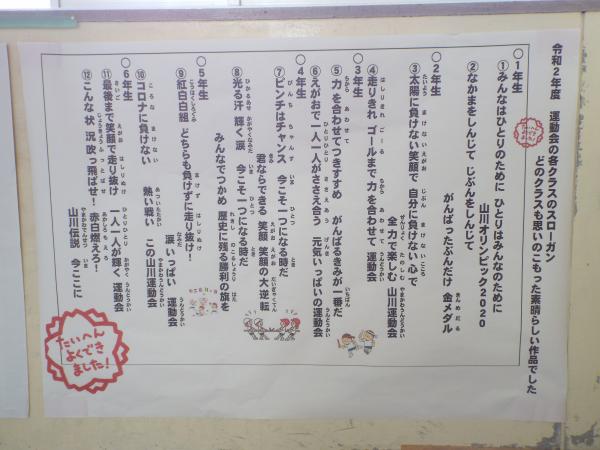 令和2年度 運動会の各クラスのスローガン
どのクラスも思いのこもった素晴らしい作品でした
〇1年生
①みんなはひとりのために ひとりはみんなのために
山川オリンピック2020
②なかまをしんじて じぶんをしんじて
がんばったぶんだけ 金メダル
〇2年生
③太陽に負けない笑顔で 自分に負けない心で
全力で楽しむ 山川運動会
④走りきれ ゴールまで 力を合わせて 運動会
〇3年生
⑤力を合わせてつきすすめ がんばるきみが一番だ
⑥えがおで一人一人がささえ合う 元気いっぱいの運動会
〇4年生
⑦ピンチはチャンス 今こそ一つになる時だ
君ならできる 笑顔 笑顔の大逆転
⑧光る汗 輝く涙 今こそ一つになる時だ
みんなでつかめ 歴史に残る勝利の旗を
〇5年生
⑨紅白白組 どちらも負けずに走り抜け!
涙いっぱい 運動会
⑩コロナに負けない
熱い戦い この山川運動会
〇6年生
⑪最後まで笑顔で走り抜け 一人一人が輝く 運動会
⑫こんな状況吹っ飛ばせ! 赤白燃えろ!
山川伝説 今ここに
たいへん
よくでき
ました!